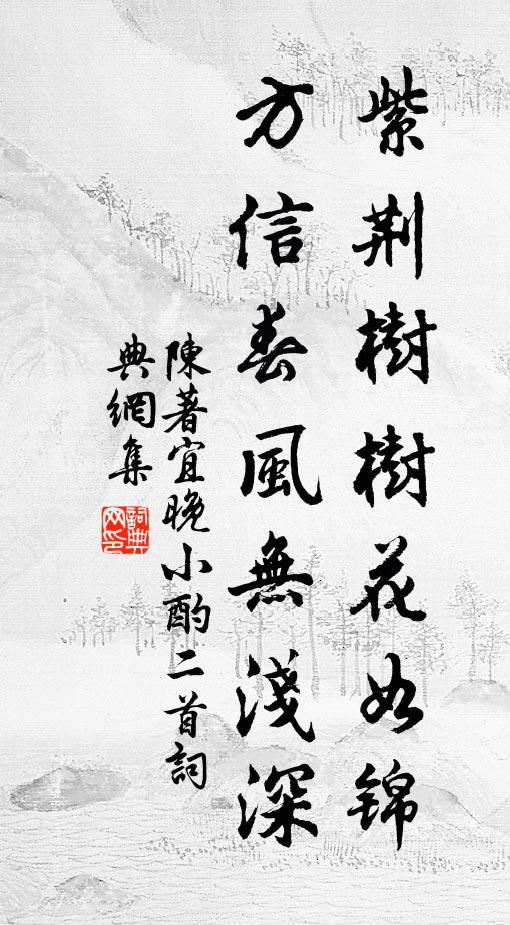 紫荆樹樹花如錦
方信春風無淺深
陳著宜晚小酌二首詞
典網集
詞典
网印